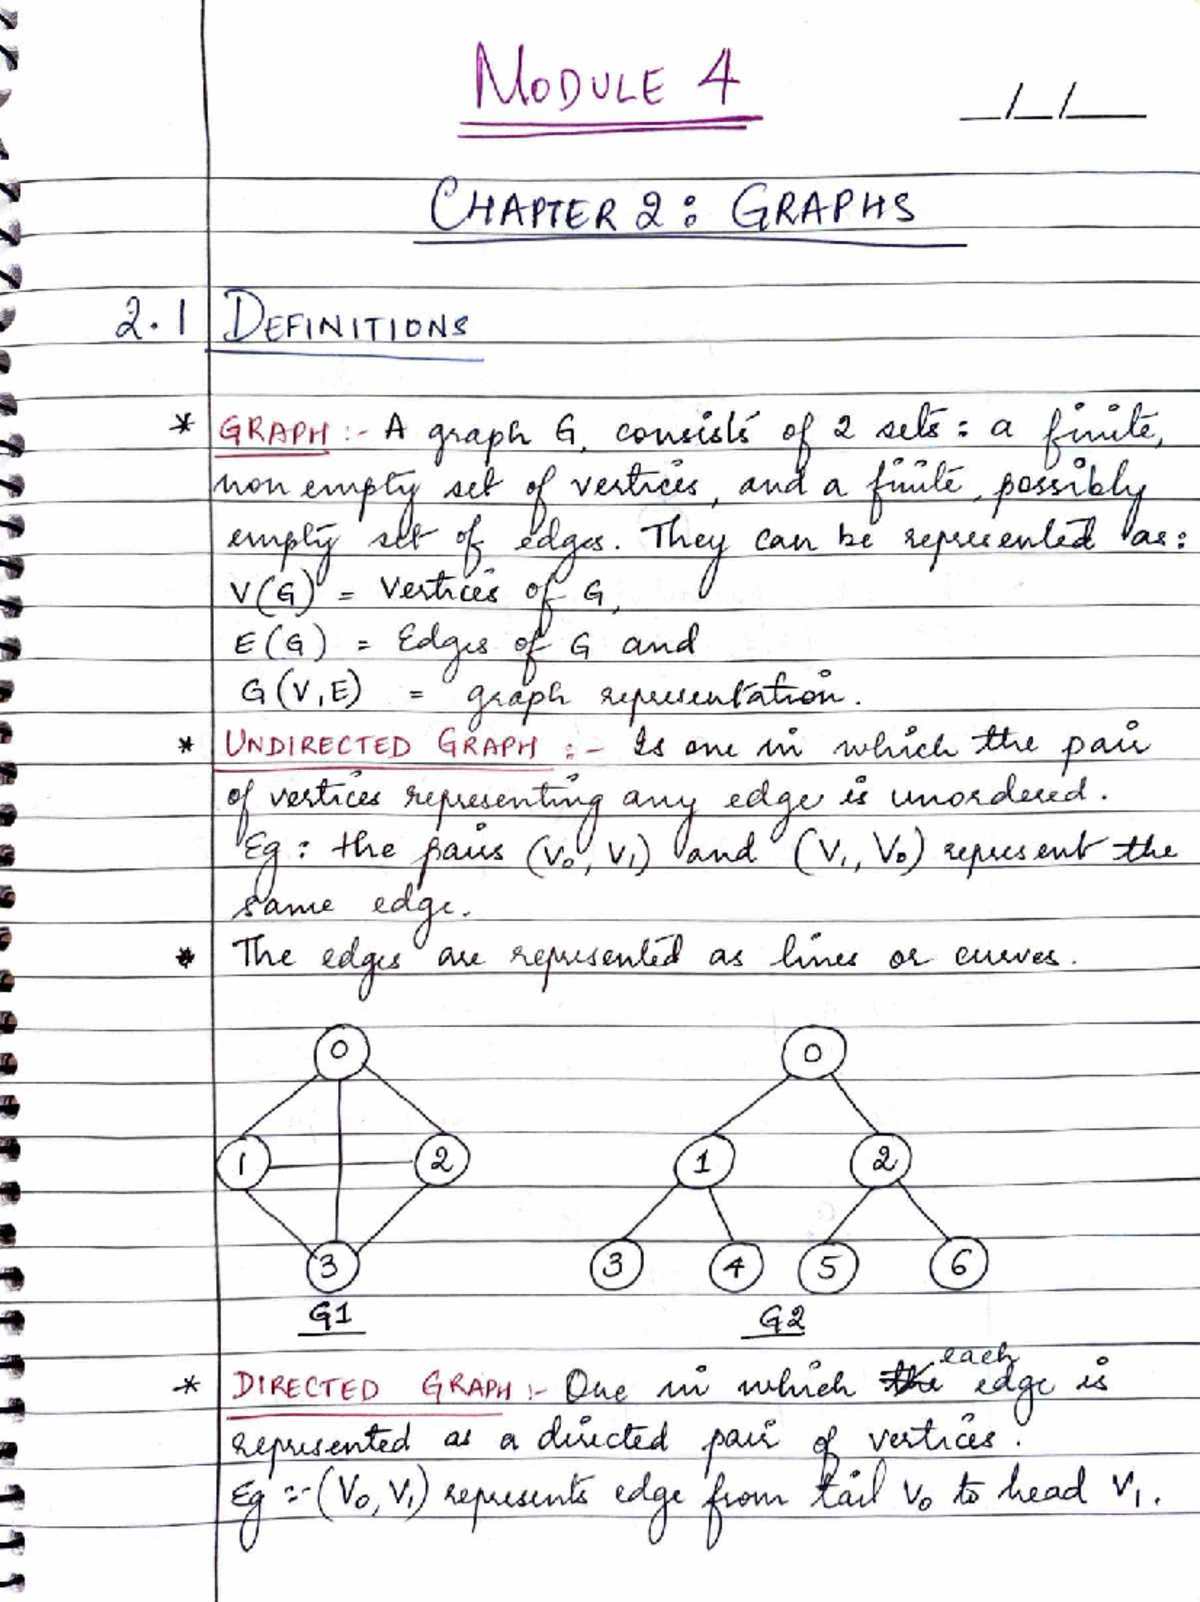 MODULE 4
_/_/_
CHAPTER 2: GRAPHS
2.1 DEFINITIONS
* GRAPH :- A graph G, consists of 2 sets: a finite,
non empty set of vertices, and a finite, possibly
empty set of edges. They can be represented as:
V(G) = Vertices of G,
E(G) = Edges of G and
G(V,E) = graph representation.
* UNDIRECTED GRAPH :- Is one in which the pair
of vertices representing any edge is unordered.
Eg: the pairs (V0, V1) and (V1, V0) represent the
same edge.
* The edges are represented as lines or curves.
0 0
1 2 1 2
3 3 4 5 6
G1 G2
* DIRECTED GRAPH :- One in which each edge is
represented as a directed pair of vertices.
Eg :- (V0, V1) represents edge from tail V0 to head V1.